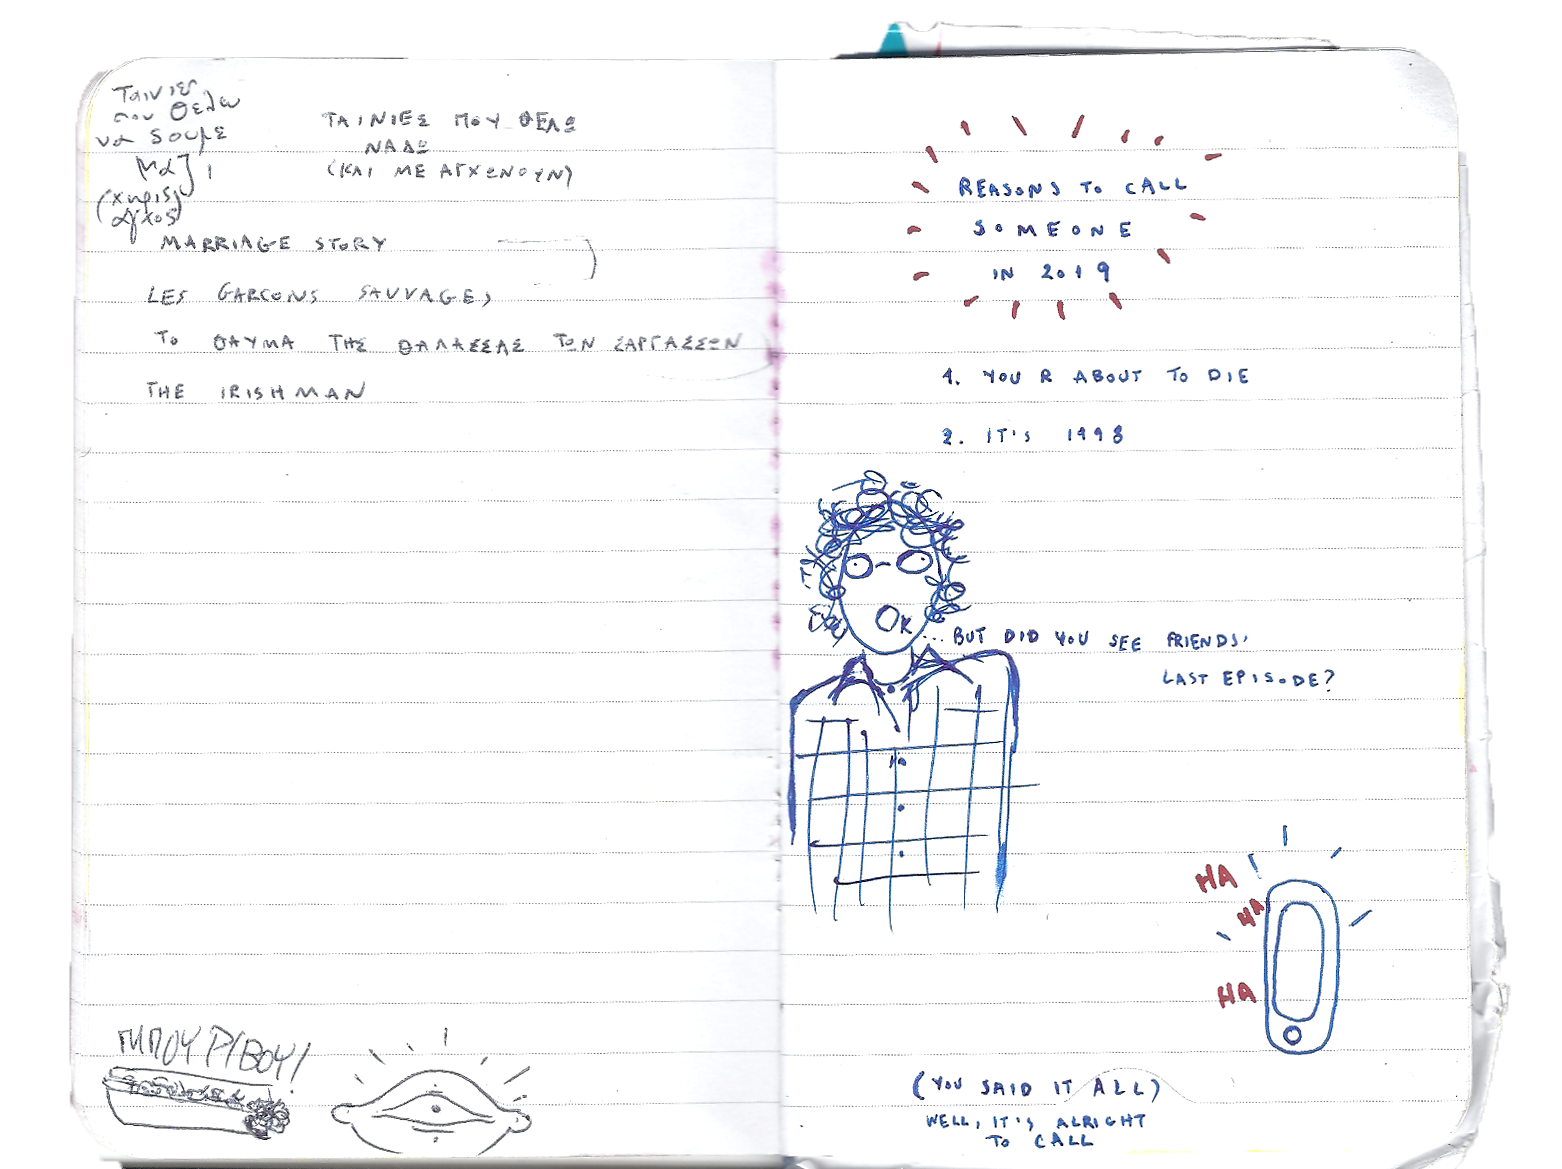 Ταινιες
που θελω
να δουμε
μαζι
(χωρις
αγχος)
ΤΑΙΝΙΕΣ ΠΟΥ ΘΕΛΩ
ΝΑ ΔΩ
(ΚΑΙ ΜΕ ΑΓΧΩΝΟΥΝ)
MARRIAGE STORY
LES GARCONS SAUVAGES
ΤΟ ΘΑΥΜΑ ΤΗΣ ΘΑΛΑΣΣΑΣ ΤΩΝ ΣΑΡΓΑΣΣΩΝ
THE IRISHMAN
REASONS TO CALL
SOMEONE
IN 2019
1. YOU R ABOUT TO DIE
2. IT'S 1998
OK... BUT DID YOU SEE FRIENDS'
LAST EPISODE?
HA
HA
HA
(YOU SAID IT ALL)
WELL, IT'S ALRIGHT
TO CALL